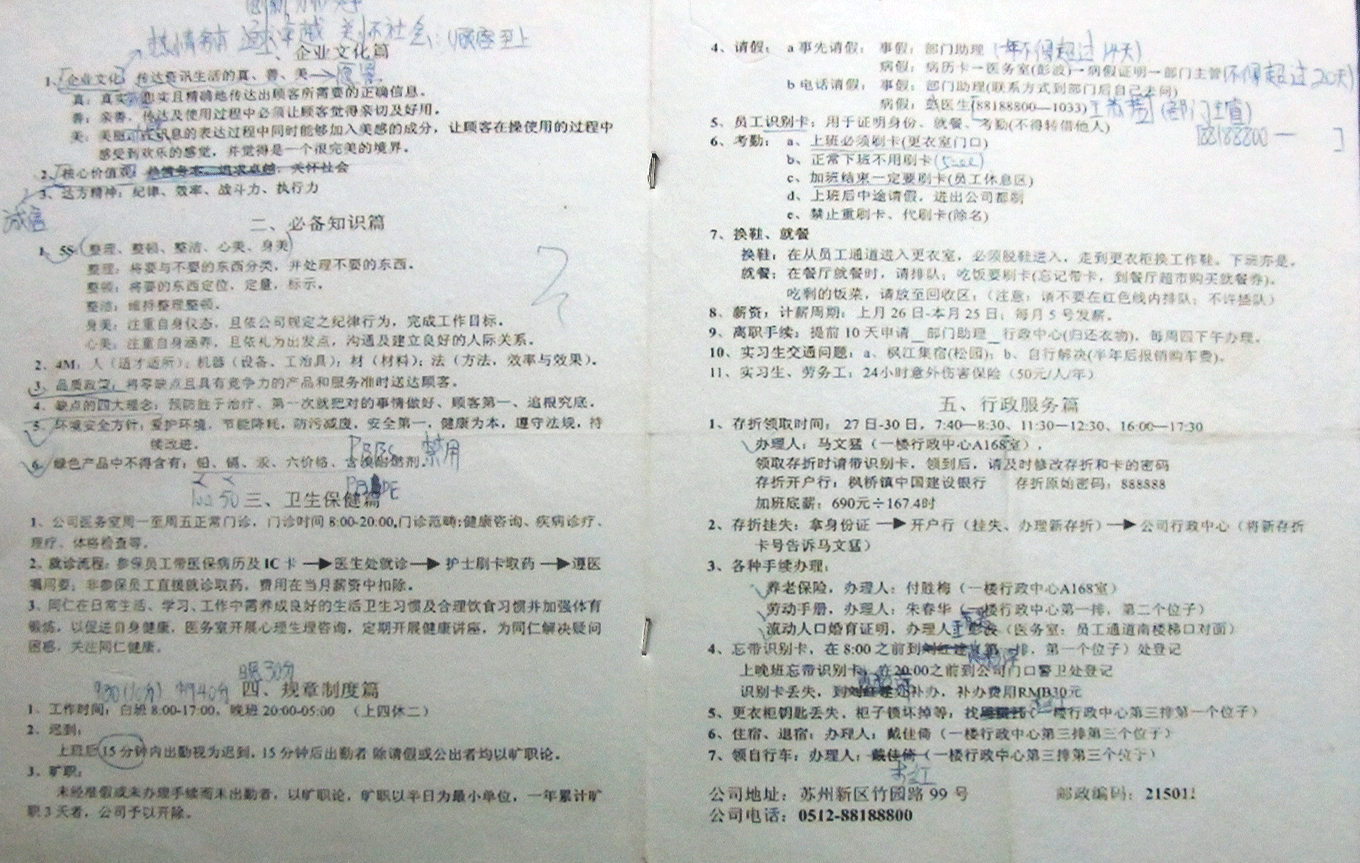 创新
热情务实 追求卓越 关怀社会 顾客至上
一、企业文化篇
1、企业文化：传达资讯生活的真、善、美→愿景
真：真实、忠实且精确地传达出顾客所需要的正确信息。
善：亲善、传达及使用过程中必须让顾客觉得亲切及好用。
美：美丽，讯息的表达过程中同时能够加入美感的成分，让顾客在操使用的过程中
感受到欢乐的感觉，并觉得是一个很完美的境界。
2、核心价值观：热情务本、追求卓越、关怀社会
3、达方精神：纪律、效率、战斗力、执行力
诚信
二、必备知识篇
1、5S（整理、整顿、整洁、心美、身美）
整理：将要与不要的东西分类，并处理不要的东西。
整顿：将要的东西定位、定量，标示。
整洁：维持整理整顿。
身美：注重自身仪态，且依公司规定之纪律行为，完成工作目标。
心美：注重自身涵养，且依礼为出发点，沟通及建立良好的人际关系。
2、4M：人（适才适所）；机器（设备、工治具）；材（材料）；法（方法，效率与效果）。
3、品质政策：将零缺点且具有竞争力的产品和服务准时送达顾客。
4、缺点的四大理念：预防胜于治疗、第一次就把对的事情做好、顾客第一、追根究底。
5、环境安全方针：爱护环境，节能降耗，防污减废，安全第一，健康为本，遵守法规，持
续改进。
PBBS 禁用
6、绿色产品中不得含有：铅、镉、汞、六价铬、含溴耐燃剂。
100 50 PBDE
三、卫生保健篇
1、公司医务室周一至周五正常门诊，门诊时间 8:00-20:00,门诊范畴:健康咨询、疾病诊疗、
理疗、体格检查等。
2、就诊流程：参保员工带医保病历及IC 卡 → 医生处就诊 → 护士刷卡取药 → 遵医
嘱用药；非参保员工直接就诊取药，费用在当月薪资中扣除。
3、同仁在日常生活、学习、工作中需养成良好的生活卫生习惯及合理饮食习惯并加强体育
锻炼，以促进自身健康，医务室开展心理生理咨询，定期开展健康讲座，为同仁解决疑问
困惑，关注同仁健康。
9:30(10分) 晚30分
四、规章制度篇
1、工作时间：白班 8:00-17:00，晚班 20:00-05:00 （上四休二）
2、迟到：
上班后15 分钟内出勤视为迟到，15 分钟后出勤者 除请假或公出者均以旷职论。
3、旷职：
未经准假或未办理手续而未出勤者，以旷职论，旷职以半日为最小单位，一年累计旷
职 3 天者，公司予以开除。
4、请假： a 事先请假： 事假：部门助理（一年不得超过14天）
病假：病历卡一医务室(彭波)一病假证明一部门主管(不得超过20天)
b 电话请假： 事假：部门助理(联系方式到部门后自己去问)
病假：彭医生(88188800—1033) （部门主管）
[88188800 — ]
5、员工识别卡：用于证明身份、就餐、考勤(不得转借他人)
6、考勤： a、上班必须刷卡(更衣室门口)
b、正常下班不用刷卡
c、加班结束一定要刷卡(员工休息区)
d、上班后中途请假，进出公司都刷
e、禁止重刷卡、代刷卡(除名)
7、换鞋、就餐
换鞋：在从员工通道进入更衣室，必须脱鞋进入，走到更衣柜换工作鞋。下班亦是。
就餐：在餐厅就餐时，请排队；吃饭要刷卡(忘记带卡，到餐厅超市购买就餐券)。
吃剩的饭菜，请放至回收区；（注意：请不要在红色线内排队；不许插队）
8、薪资：计薪周期：上月 26 日-本月 25 日；每月 5 号发薪。
9、离职手续：提前 10 天申请 _ 部门助理 _ 行政中心(归还衣物)，每周四下午办理。
10、实习生交通问题：a、枫江集宿(松园)；b、自行解决(半年后报销购车费)。
11、实习生、劳务工：24小时意外伤害保险（50元/人/年）
五、行政服务篇
1、存折领取时间： 27日-30日，7:40—8:30、11:30—12:30、16:00—17:30
办理人：马文猛（一楼行政中心A168室），
领取存折时请带识别卡，领到后，请及时修改存折和卡的密码
存折开户行：枫桥镇中国建设银行 存折原始密码：888888
加班底薪：690元÷167.4时
2、存折挂失：拿身份证 → 开户行（挂失、办理新存折）→ 公司行政中心（将新存折
卡号告诉马文猛）
3、各种手续办理：
养老保险，办理人：付胜梅（一楼行政中心A168室）
劳动手册，办理人：朱春华（一楼行政中心第一排，第二个位子）
流动人口婚育证明，办理人：彭波（医务室：员工通道南楼梯口对面）
4、忘带识别卡，在 8:00 之前到 排，第一个位子）处登记
上晚班忘带识别卡，在 20:00之前到公司门口警卫处登记
识别卡丢失，到 处补办，补办费用RMB30元
5、更衣柜钥匙丢失，柜子锁坏掉等：找 （一楼行政中心第三排第一个位子）
6、住宿、退宿：办理人：戴佳倚（一楼行政中心第三排第三个位子）
7、领自行车：办理人：戴佳倚（一楼行政中心第三排第三个位子）
公司地址：苏州新区竹园路 99 号 邮政编码：215011
公司电话：0512-88188800